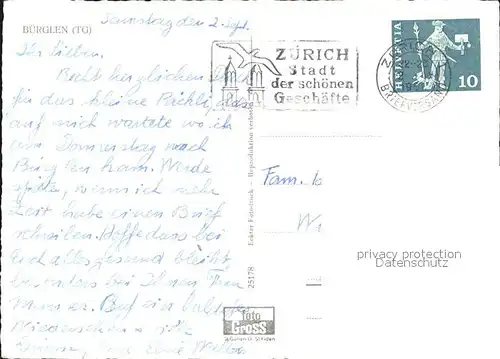 BÜRGLEN (TG)
Samstag den 2. Sept.
Ihr Lieben.
Recht herzlichen Dank
für das kleine Päckli, das
auf mich wartete wo ich
am Donnerstag nach
Bürglen kam. Werde
später, wenn ich mehr
Zeit habe einen Brief
schreiben. Hoffe dass bei
Euch alles gesund bleibt
besonders bei Ihnen Frau
Auf ein baldiges
Wiedersehen
ZÜRICH
Stadt
der schönen
Geschäfte
HELVETIA
10
BRIEFVERSAND
Fam.
25178 Echter Fotodruck - Reproduktion verboten
foto
Gross
St. Gallen
privacy protection
Datenschutz